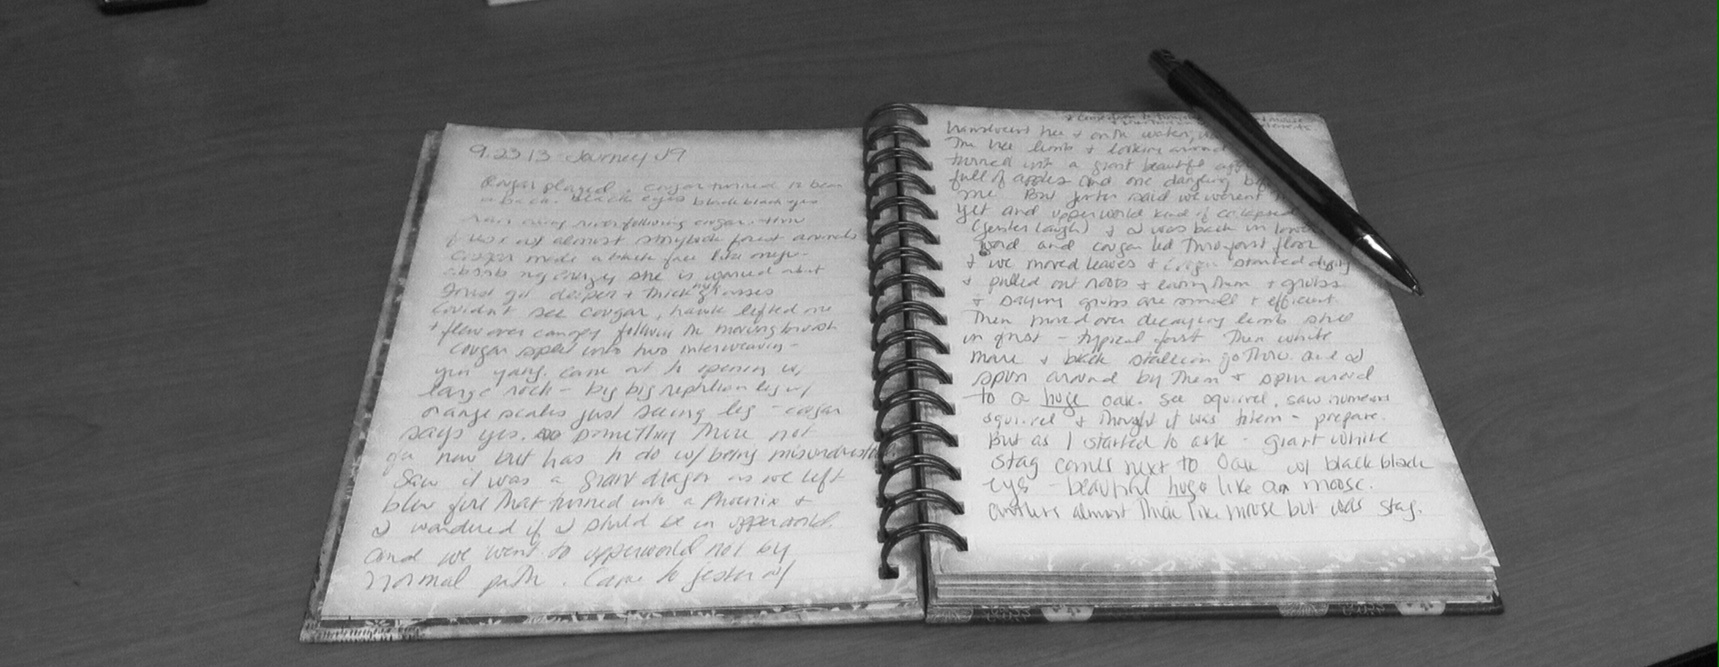 9.23.13 Journey J9
Cougar played. Cougar turned to bear
black eyes black black eyes
river following cougar
almost storybook forest animals
cougar made a black face like
energy she is worried about
forest got deeper + thick high grasses
couldn't see cougar, hawk lifted me
+ flew over canopy following the moving brush
cougar split into two interweaving -
yin yang. came out to opening w/
large rock - big big reptilian leg w/
orange scales just seeing leg - cougar
says yes. something there not
for now but has to do w/ being misunderstood.
Saw it was a giant dragon as we left
blew fire that turned into a Phoenix +
I wondered if I should be in upperworld
and we went to upperworld not by
normal path. Came to Jester w/
translucent tree + on the water,
the tree limb + looking around
turned into a giant beautiful
full of apples and one dangling
me. But Jester said we weren't
yet and upperworld kind of collapsed
(Jester laugh) + I was back in lower
word. and cougar led thru forest floor
+ we moved leaves + cougar started digging
+ pulled out roots + eating them + grubs
+ saying grubs are small + efficient.
Then moved over decaying limb still
in forest - typical forest. Then white
mare + black stallion go thru. and I
spun around by them + spun around
to a huge oak. See squirrel, saw numerous
squirrel + thought it was them - prepare.
But as I started to ask - giant white
stag comes next to Oak w/ black black
eyes - beautiful huge like a moose.
antlers almost thick like moose but was stag.